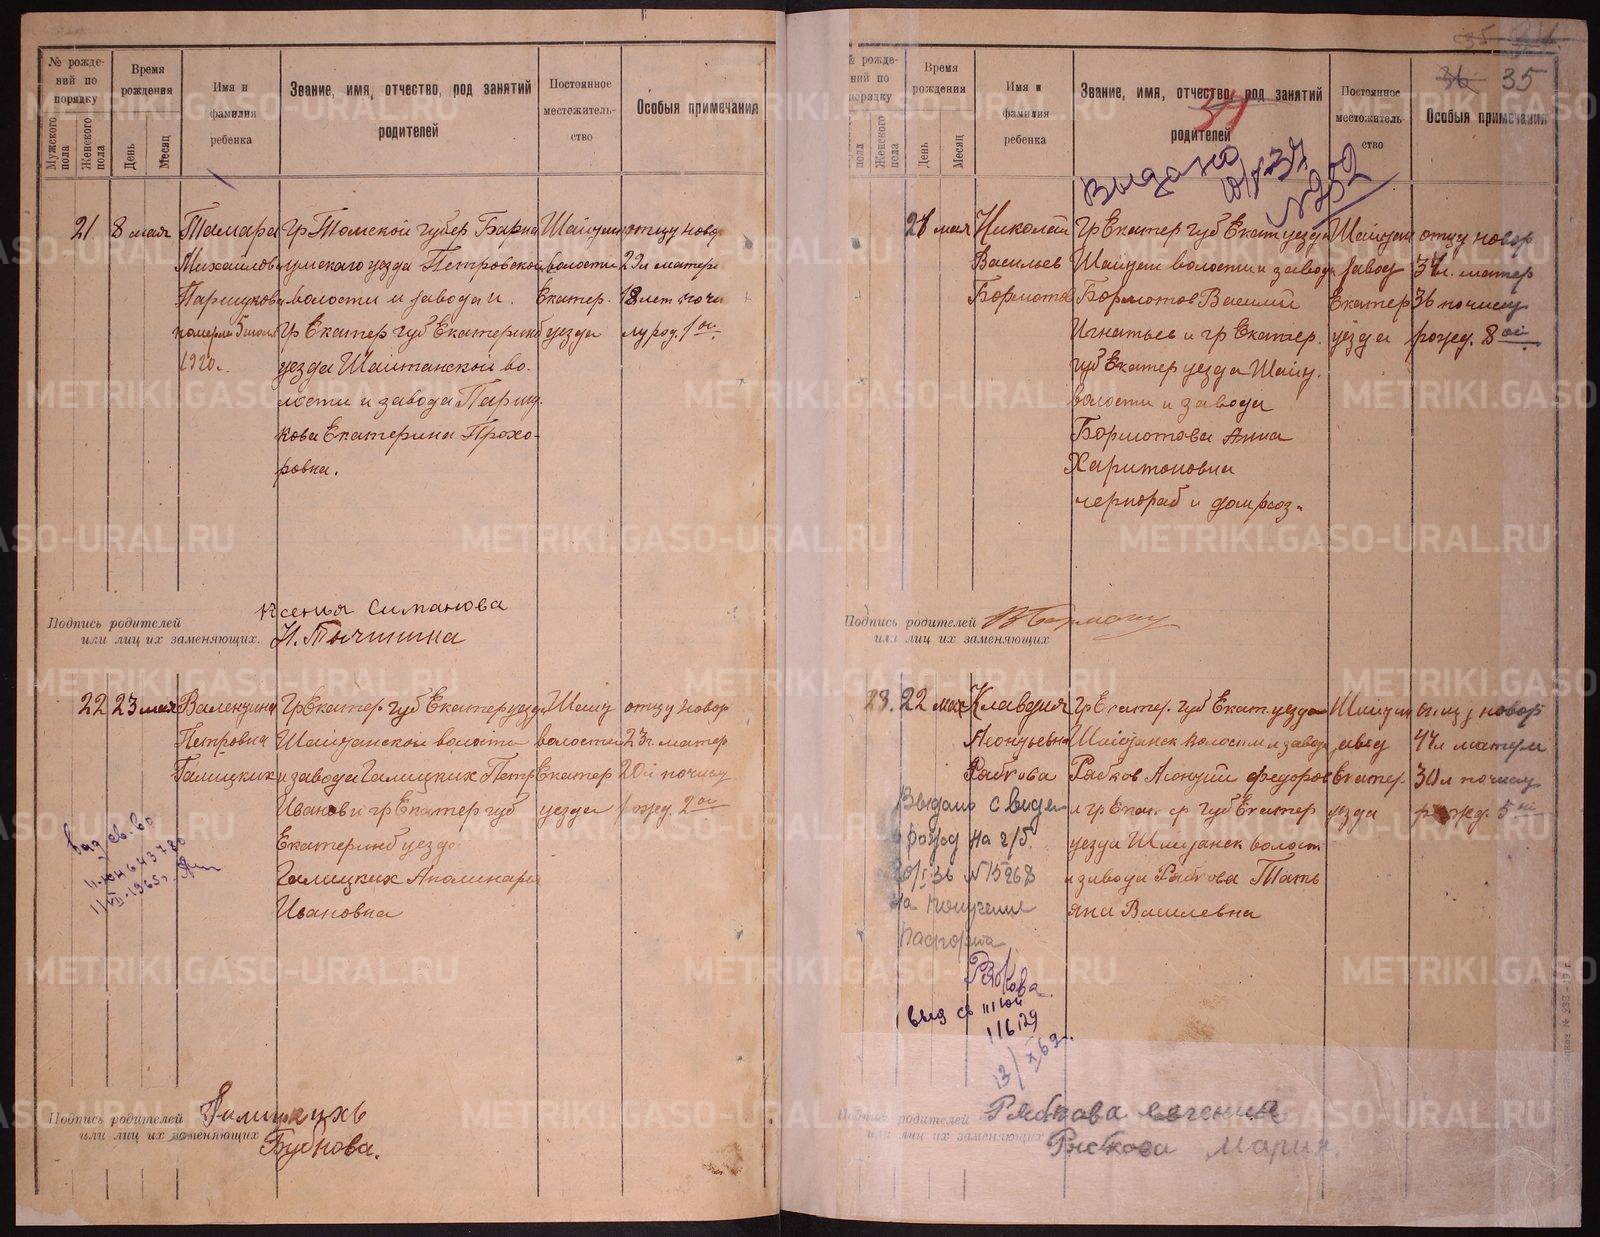 № рожде-
ний по
порядку
Мужского
пола
Женского
пола
Время
рождения
День
Месяц
Имя и
фамилия
ребенка
Звание, имя, отчество, род занятий
родителей
Постоянное
местожитель-
ство
Особыя примечания
21
8 мая
Тамара
Михайлов
Паршукова
померла 5 июля
1920 г.
гр Томской губер Барна
умскаго уезда Петровской
волости и завода и.
гр Екатер губ Екатеринб
уезда Шайтанской во-
лости и завода Паршу.
кова Екатерина Прохо-
ровна.
Шайтан
волости
Екатер.
уезда
отцу новор
22л матер
18 лет по чи
лу род. 1ой
Подпись родителей
или лиц их заменяющих.
Ксенья Симанова
Н. Тычинина
22
23 мая
Валентина
Петровна
Галицких
гр Екатер. губ Екатер уезда
Шайтанской волости
и завода Галицких Петр
Иванов и гр Екатер губ
Екатеринб уезда
Галицких Аполинария
Ивановна
Шайт
волости
Екатер
уезда
отцу новор
23г. матер
20й по числу
рожд. 2ой
выд св. во
II-ЮА 643780
Подпись родителей
или лиц их заменяющих
Галицкихъ
Бубнова.
35
36 35
№ рожде-
ний по
порядку
пола
Женского
пола
Время
рождения
День
Месяц
Имя и
фамилия
ребенка
Звание, имя, отчество, род занятий
родителей
Постоянное
местожитель-
ство
Особыя примечания
34
Выдано
28 мая
Николай
Васильев
Бормотов
гр Екатер губ Екат уезда
Шайтан волости и завода
Бормотов Василий
Игнатьев и гр Екатер.
губ Екатер уезда Шайт.
волости и завода
Бормотова Анна
Харитоновна
чернораб и дом хоз.
Шайтан
завод
Екатер
уезда
отцу новор
37л. матер
36 по числу
рожд. 8ой
Подпись родителей
или лиц их заменяющих
23.
22 мая
Клавдия
Леонтьевна
Рябкова
гр Екатер. губ Екат. уезда
Шайтанск волости и завода
Рябков Леонтий Федоров
и гр Екат. ер губ Екатер
уезда Шайтанск волост
и завода Рябкова Тать
яна Василевна
Шайтан
завод
Екатер.
уезда
отцу новор
44л матери
30л по числу
рожд. 5ой
Выдано с видет
о рожд на г/б.
20/I 36 №15268
на получение
паспорта
Рябкова
выд св III ЮЙ
116129
13/X 69г.
Подпись родителей
или лиц их заменяющих
Рябкова евгения
Рябкова Мария.
METRIKI.GASO-URAL.RU